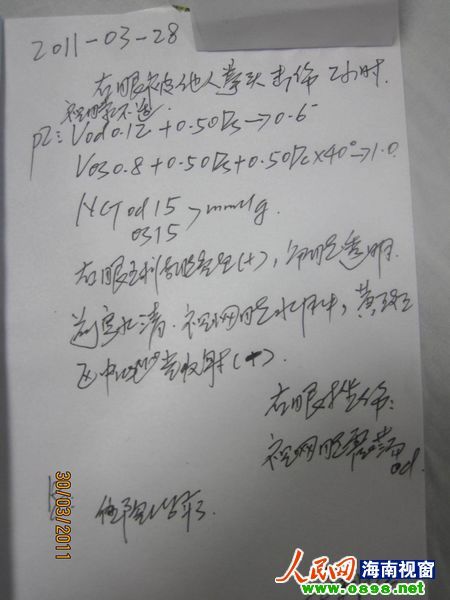 2011-03-28
右眼被他人拳头击伤2小时.
视物不
pE: Vod 0.12 +0.50Ds→0.6
Vos 0.8 +0.50Ds+0.50Dc×40°→1.0
NCT od 15 mmHg.
os 15
右眼 (+), 角膜透明.
前房水清. 视网膜水肿, 黄斑
区中心凹光反射(+).
右眼挫伤:
视网膜震荡 od.
30/03/2011
人民网 海南视窗
www.0898.net